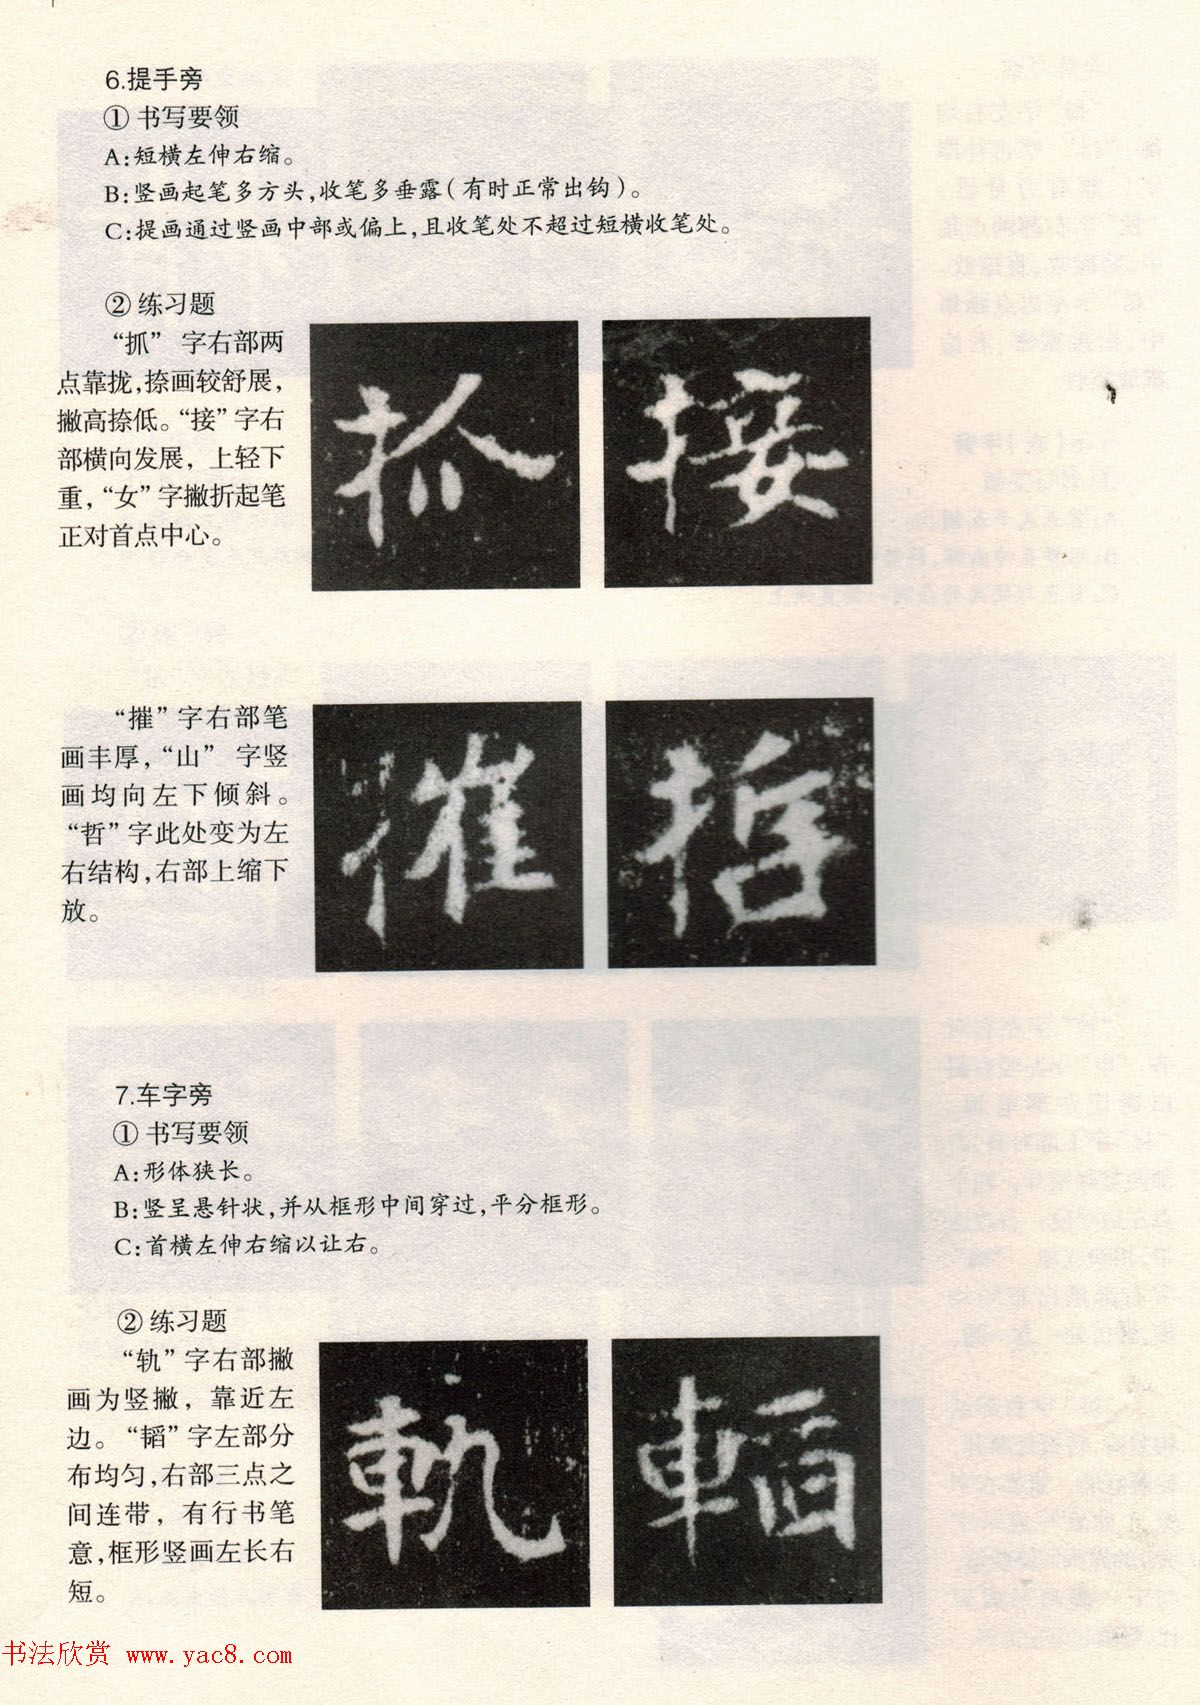 6.提手旁
① 书写要领
A:短横左伸右缩。
B:竖画起笔多方头,收笔多垂露(有时正常出钩)。
C:提画通过竖画中部或偏上,且收笔处不超过短横收笔处。
② 练习题
“抓” 字右部两
点靠拢,捺画较舒展,
撇高捺低。“接”字右
部横向发展，上轻下
重，“女”字撇折起笔
正对首点中心。
抓 接
“摧”字右部笔
画丰厚，“山” 字竖
画均向左下倾斜。
“哲”字此处变为左
右结构,右部上缩下
放。
摧 哲
7.车字旁
① 书写要领
A:形体狭长。
B:竖呈悬针状,并从框形中间穿过,平分框形。
C:首横左伸右缩以让右。
② 练习题
“轨”字右部撇
画为竖撇，靠近左
边。“韬”字左部分
布均匀,右部三点之
间连带，有行书笔
意,框形竖画左长右
短。
軌
书法欣赏 www.yac8.com